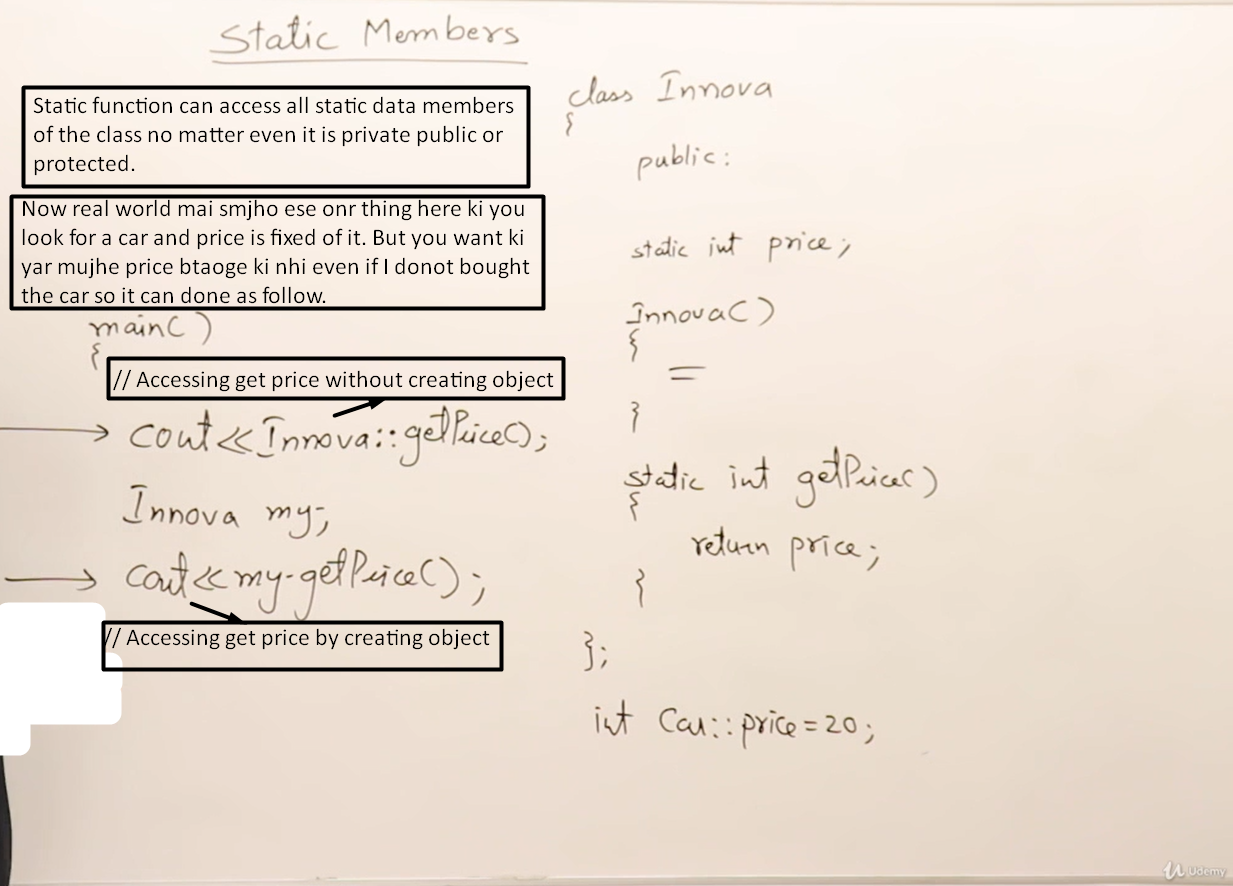 Static Members
Static function can access all static data members
of the class no matter even it is private public or
protected.
Now real world mai smjho ese onr thing here ki you
look for a car and price is fixed of it. But you want ki
yar mujhe price btaoge ki nhi even if I donot bought
the car so it can done as follow.
main()
{
// Accessing get price without creating object
cout<<Innova::getPrice();
Innova my;
cout<<my.getPrice();
// Accessing get price by creating object
class Innova
{
public:
static int price;
Innova()
{
}
static int getPrice()
{
return price;
}
};
int Car::price=20;
Udemy